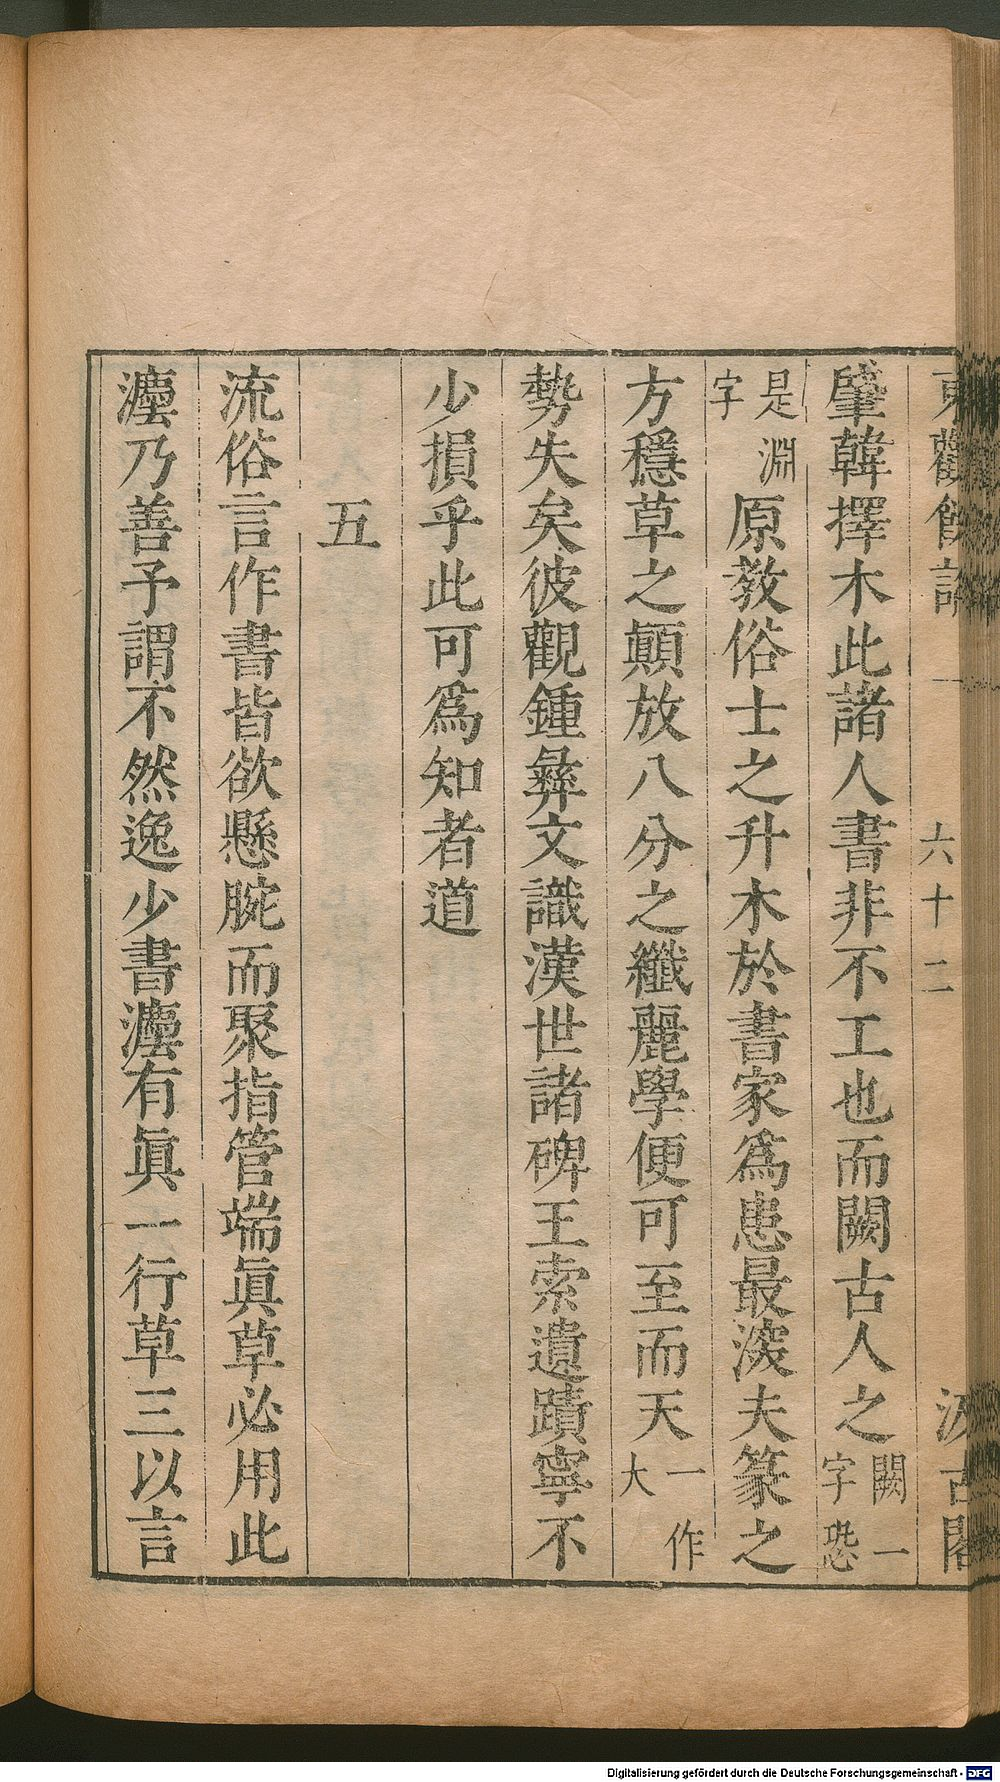 東觀餘論
六十二
汲古閣
肈韓擇木此諸人書非不工也而闕古人之闕一字恐
是淵字原敎俗士之升木於書家爲患最深夫篆之
方穩草之顚放八分之纖麗學便可至而天一作大
勢失矣彼觀鍾彝文識漢世諸碑王索遺蹟寧不
少損乎此可爲知者道
五
流俗言作書皆欲懸腕而聚指管端眞草必用此
灋乃善予謂不然逸少書灋有眞一行草三以言
Digitalisierung gefördert durch die Deutsche Forschungsgemeinschaft - DFG